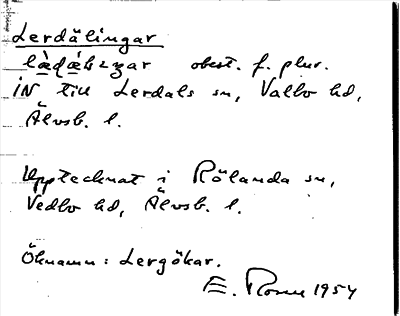 Lerdälingar
obest. f. plur.
IN till Lerdals sn, Valbo hd,
Älvsb. l.
Upptecknat i Rölanda sn,
Vedbo hd, Älvsb. l.
Öknamn: Lergökar.
E. Rosén 1954